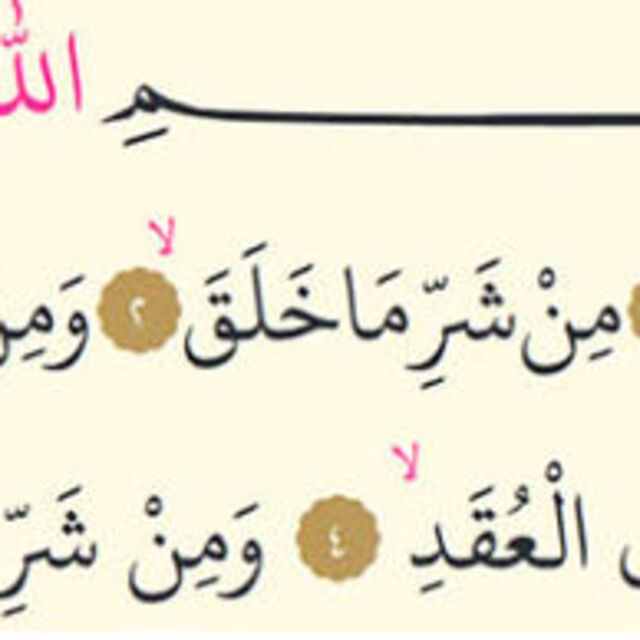 ـمِ اللّٰ
مِنْ شَرِّ مَا خَلَقَۙ ٢ وَمِنْ
الْعُقَدِۙ ٤ وَمِنْ شَرِّ